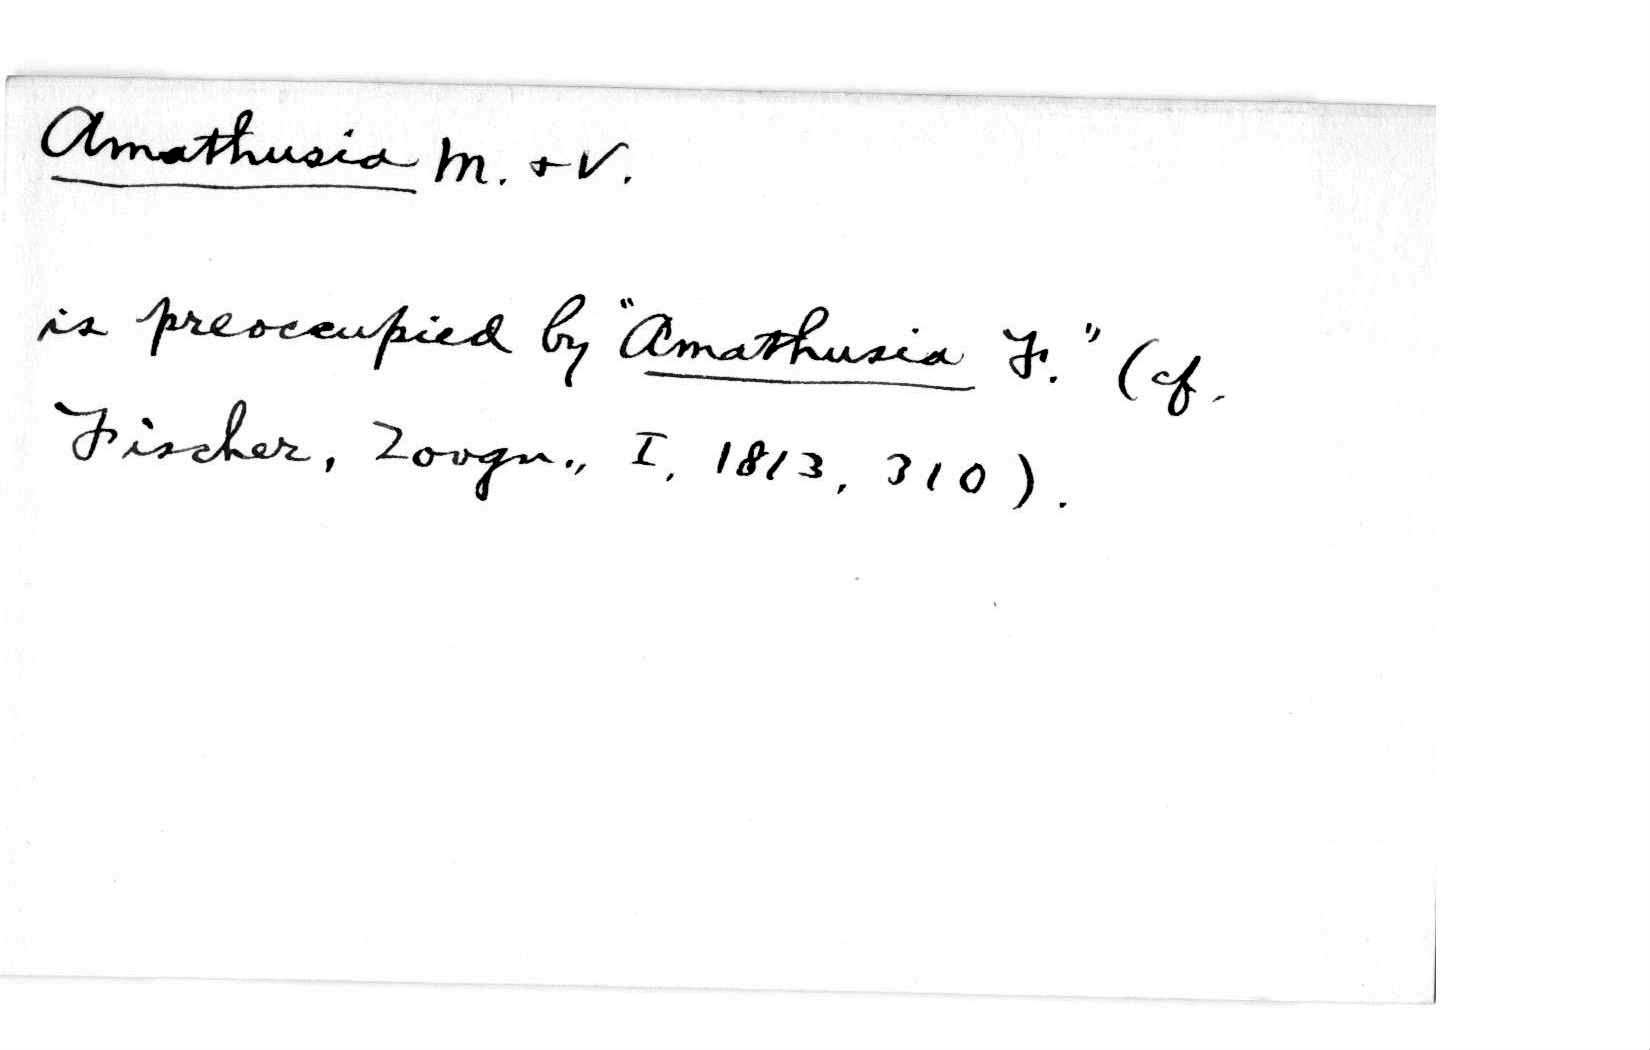 Amathusia M. + V.
is preoccupied by "Amathusia F." (cf.
Fischer, Zoogn., I, 1813, 310).